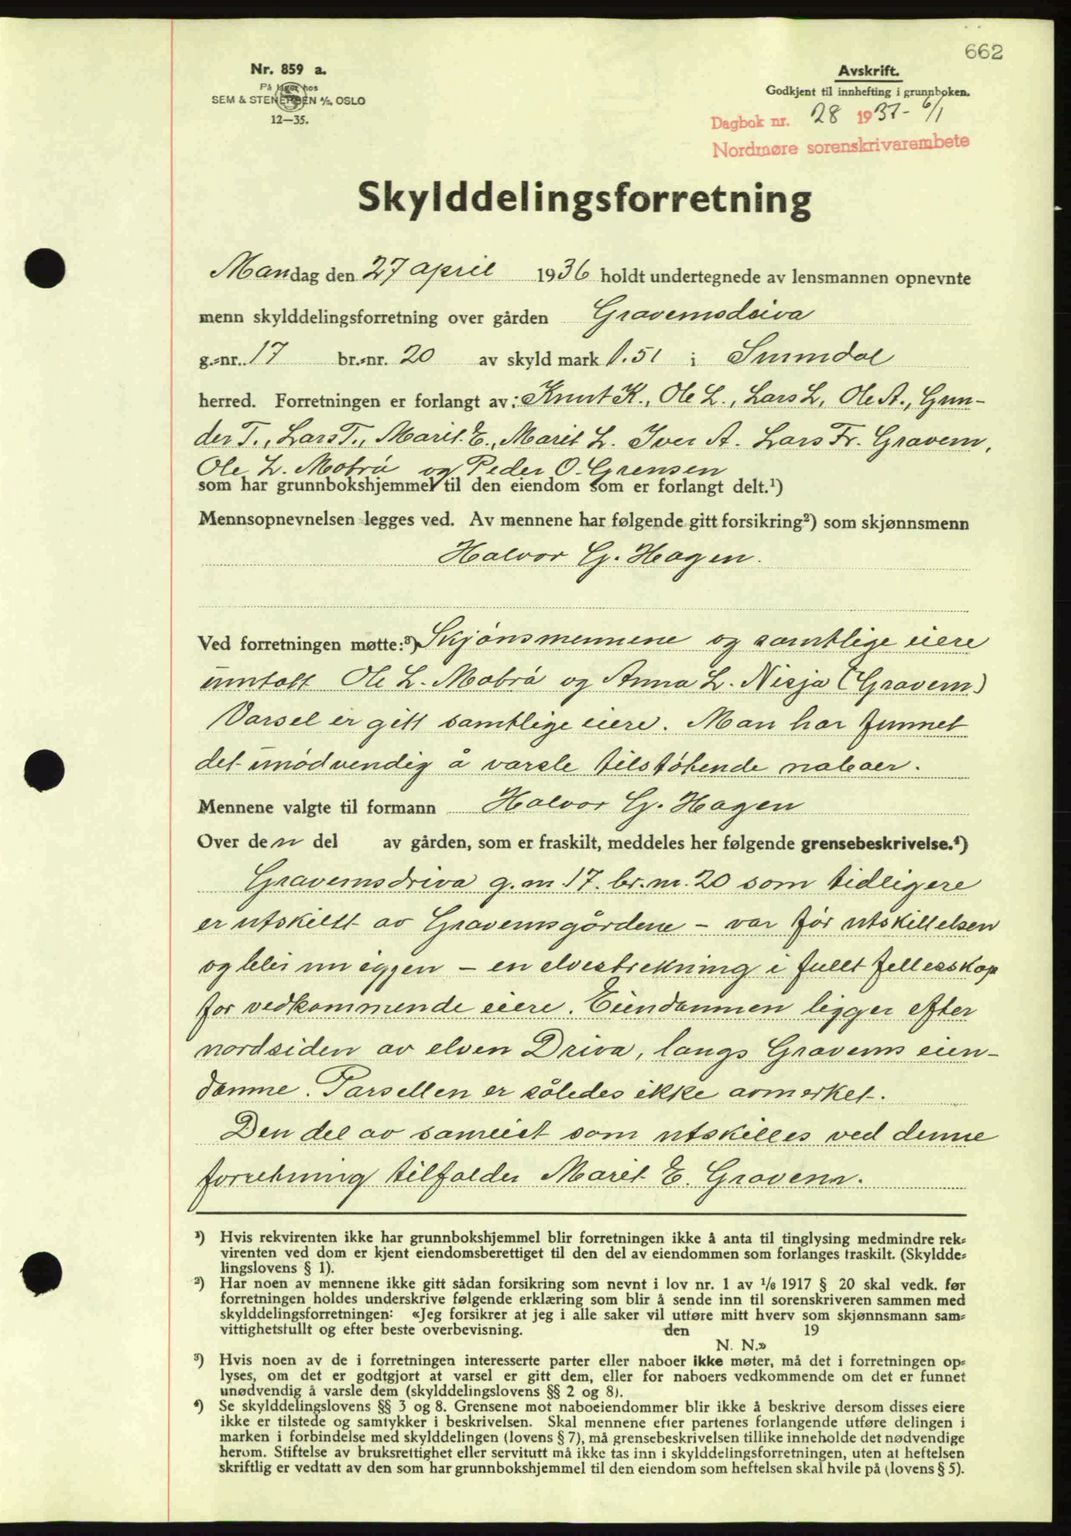 662
Nr. 859 a.
På lager hos
SEM & STENERSEN A/S, OSLO
12—35.
Avskrift.
Godkjent til innhefting i grunnboken.
Dagbok nr. 28 1937- 6/1
Nordmøre sorenskrivarembete
Skylddelingsforretning
Mandag den 27 april 1936 holdt undertegnede av lensmannen opnevnte
menn skylddelingsforretning over gården Gravemsdriva
g.-nr. 17 br.-nr. 20 av skyld mark 1.51 i Sunndal
herred. Forretningen er forlangt av: Knut K., Ole L., Lars L, Ole A., Gun-
der T., Lars T., Marit E., Marit L. Iver A. Lars Fr. Gravem,
Ole L. Mobrå og Peder O. Grensen
som har grunnbokshjemmel til den eiendom som er forlangt delt.¹)
Mennsopnevnelsen legges ved. Av mennene har følgende gitt forsikring²) som skjønnsmenn
Halvor G. Hagen.
Ved forretningen møtte:³) Skjønsmennene og samtlige eiere
unntatt Ole L. Mobrå og Anna L. Nisja (Gravem)
Varsel er gitt samtlige eiere. Man har funnet
det unødvendig å varsle tilstøtende naboer.
Mennene valgte til formann Halvor G. Hagen
Over den del av gården, som er fraskilt, meddeles her følgende grensebeskrivelse.⁴)
Gravemsdriva g.nr. 17. br.nr. 20 som tidligere
er utskillt av Gravemsgårdene - var før utskillelsen
og blir nu igjen - en elvestrekning i fullt fellesskap
for vedkommende eiere. Eiendommen ligger efter
nordsiden av elven Driva, langs Gravems eien-
domme. Parsellen er således ikke avmerket.
Den del av sameiet som utskilles ved denne
forretning tilfalder Marit E. Gravem.
¹) Hvis rekvirenten ikke har grunnbokshjemmel blir forretningen ikke å anta til tinglysing medmindre rek-
virenten ved dom er kjent eiendomsberettiget til den del av eiendommen som forlanges fraskilt. (Skyldde-
lingslovens § 1).
²) Har noen av mennene ikke gitt sådan forsikring som nevnt i lov nr. 1 av 1/6 1917 § 20 skal vedk. før
forretningen holdes underskrive følgende erklæring som blir å sende inn til sorenskriveren sammen med
skylddelingsforretningen: «Jeg forsikrer at jeg i alle saker vil utføre mitt hverv som skjønnsmann sam-
vittighetsfullt og efter beste overbevisning. den 19
N. N.»
³) Hvis noen av de i forretningen interesserte parter eller naboer ikke møter, må det i forretningen op-
lyses, om det er godtgjort at varsel er gitt dem, eller for naboers vedkommende om det er funnet
unødvendig å varsle dem (skylddelingslovens §§ 2 og 8).
⁴) Se skylddelingslovens §§ 3 og 8. Grensene mot naboeiendommer blir ikke å beskrive dersom disses eiere
ikke er tilstede og samtykker i beskrivelsen. Skal mennene efter partenes forlangende utføre delingen i
marken i forbindelse med skylddelingen (lovens § 7), må grensebeskrivelsen tillike inneholde det nødvendige
herom. Stiftelse av bruksrettighet eller servitutt må ikke tas inn i skylddelingsforretningen, uten at heftelsen
skriftlig er vedtatt av den som har grunnbokshjemmel til den eiendom som heftelsen skal hvile på (lovens § 5).